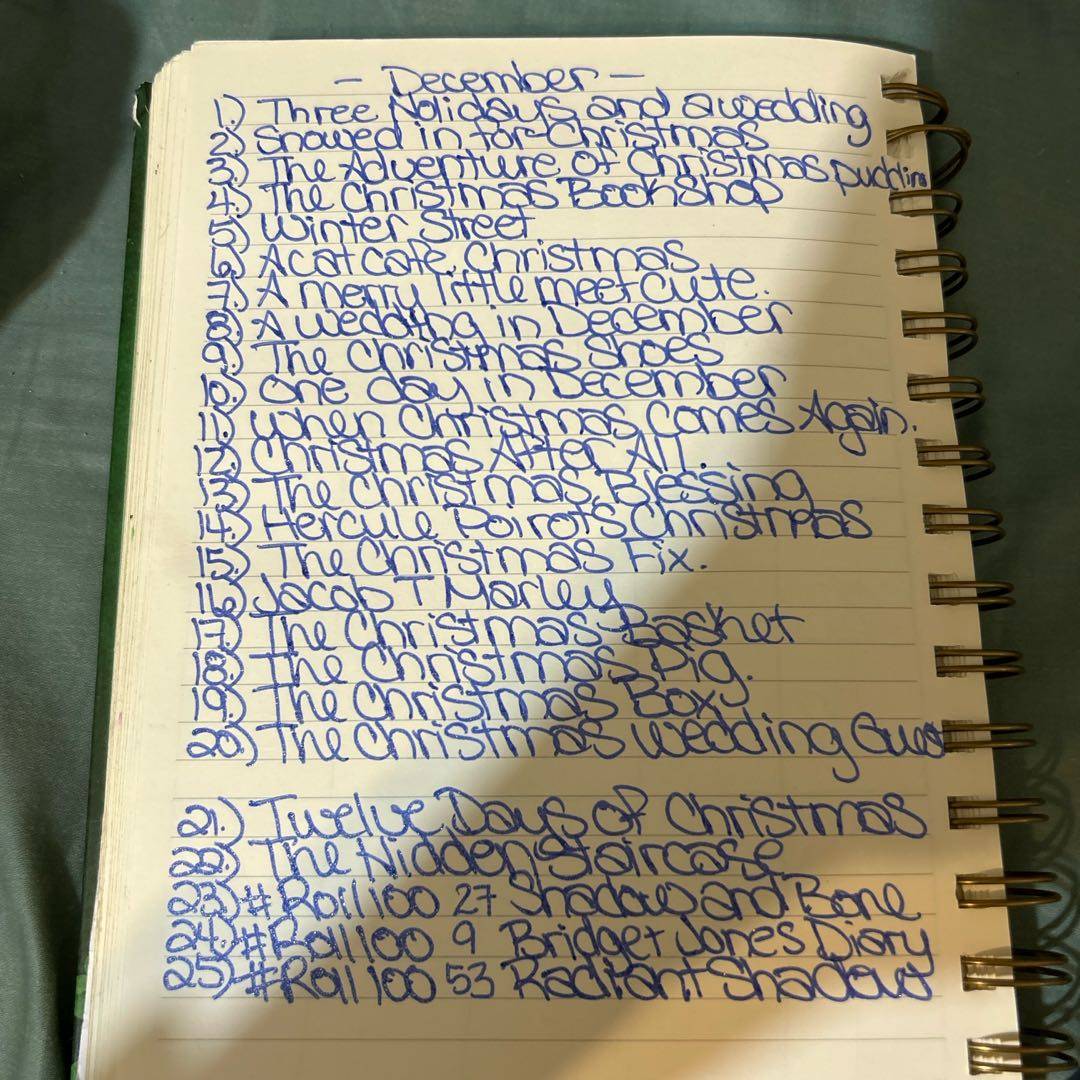 - December -
1.) Three Holidays and a wedding
2.) Snowed in for Christmas
3.) The Adventure of Christmas puddin
4.) The Christmas BookShop
5.) Winter Street
6.) A cat cafe Christmas
7.) A merry little meet cute.
8.) A wedding in December
9.) The Christmas Shoes
10.) One day in December
11.) When Christmas Comes Again.
12.) Christmas After All.
13.) The Christmas Blessing
14.) Hercule Poirots Christmas
15.) The Christmas Fix.
16.) Jacob T Marley
17.) The Christmas Basket
18.) The Christmas Pig.
19.) The Christmas Box
20.) The Christmas wedding Guest
21.) Twelve Days of Christmas
22.) The Hidden Staircase
23.) #Roll100 27 Shadow and Bone
24.) #Roll100 9 Bridget Jones Diary
25.) #Roll100 53 Radiant Shadows